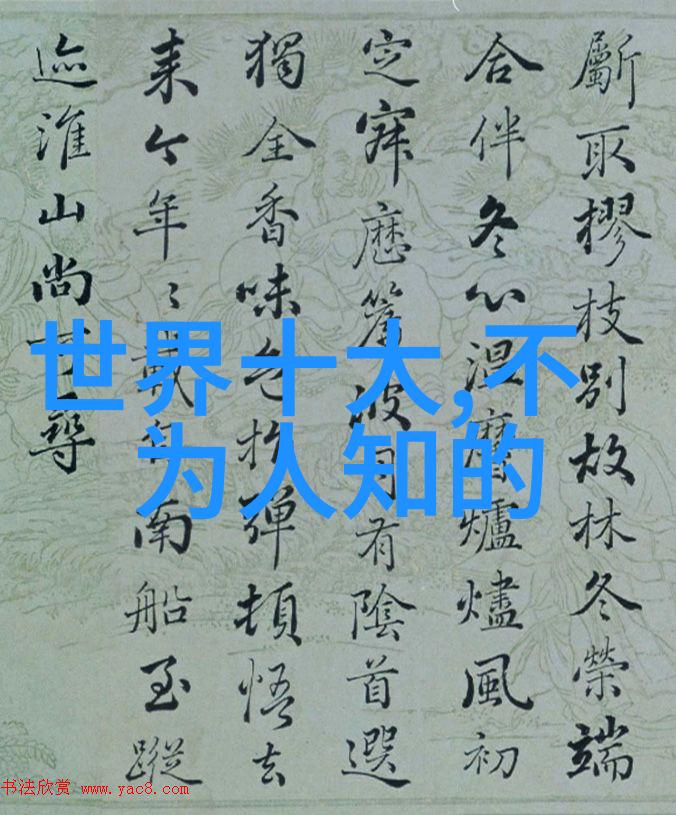 斸取樛枝别故林冬榮端
合伴冬心温爐燼風初
定寐波月有陰首選
獨全香味色彈頓悟去
来今年〻載南船至蹤
迹淮山尚可尋
世界十大,不
为人知的
书法欣赏 www.yac8.com